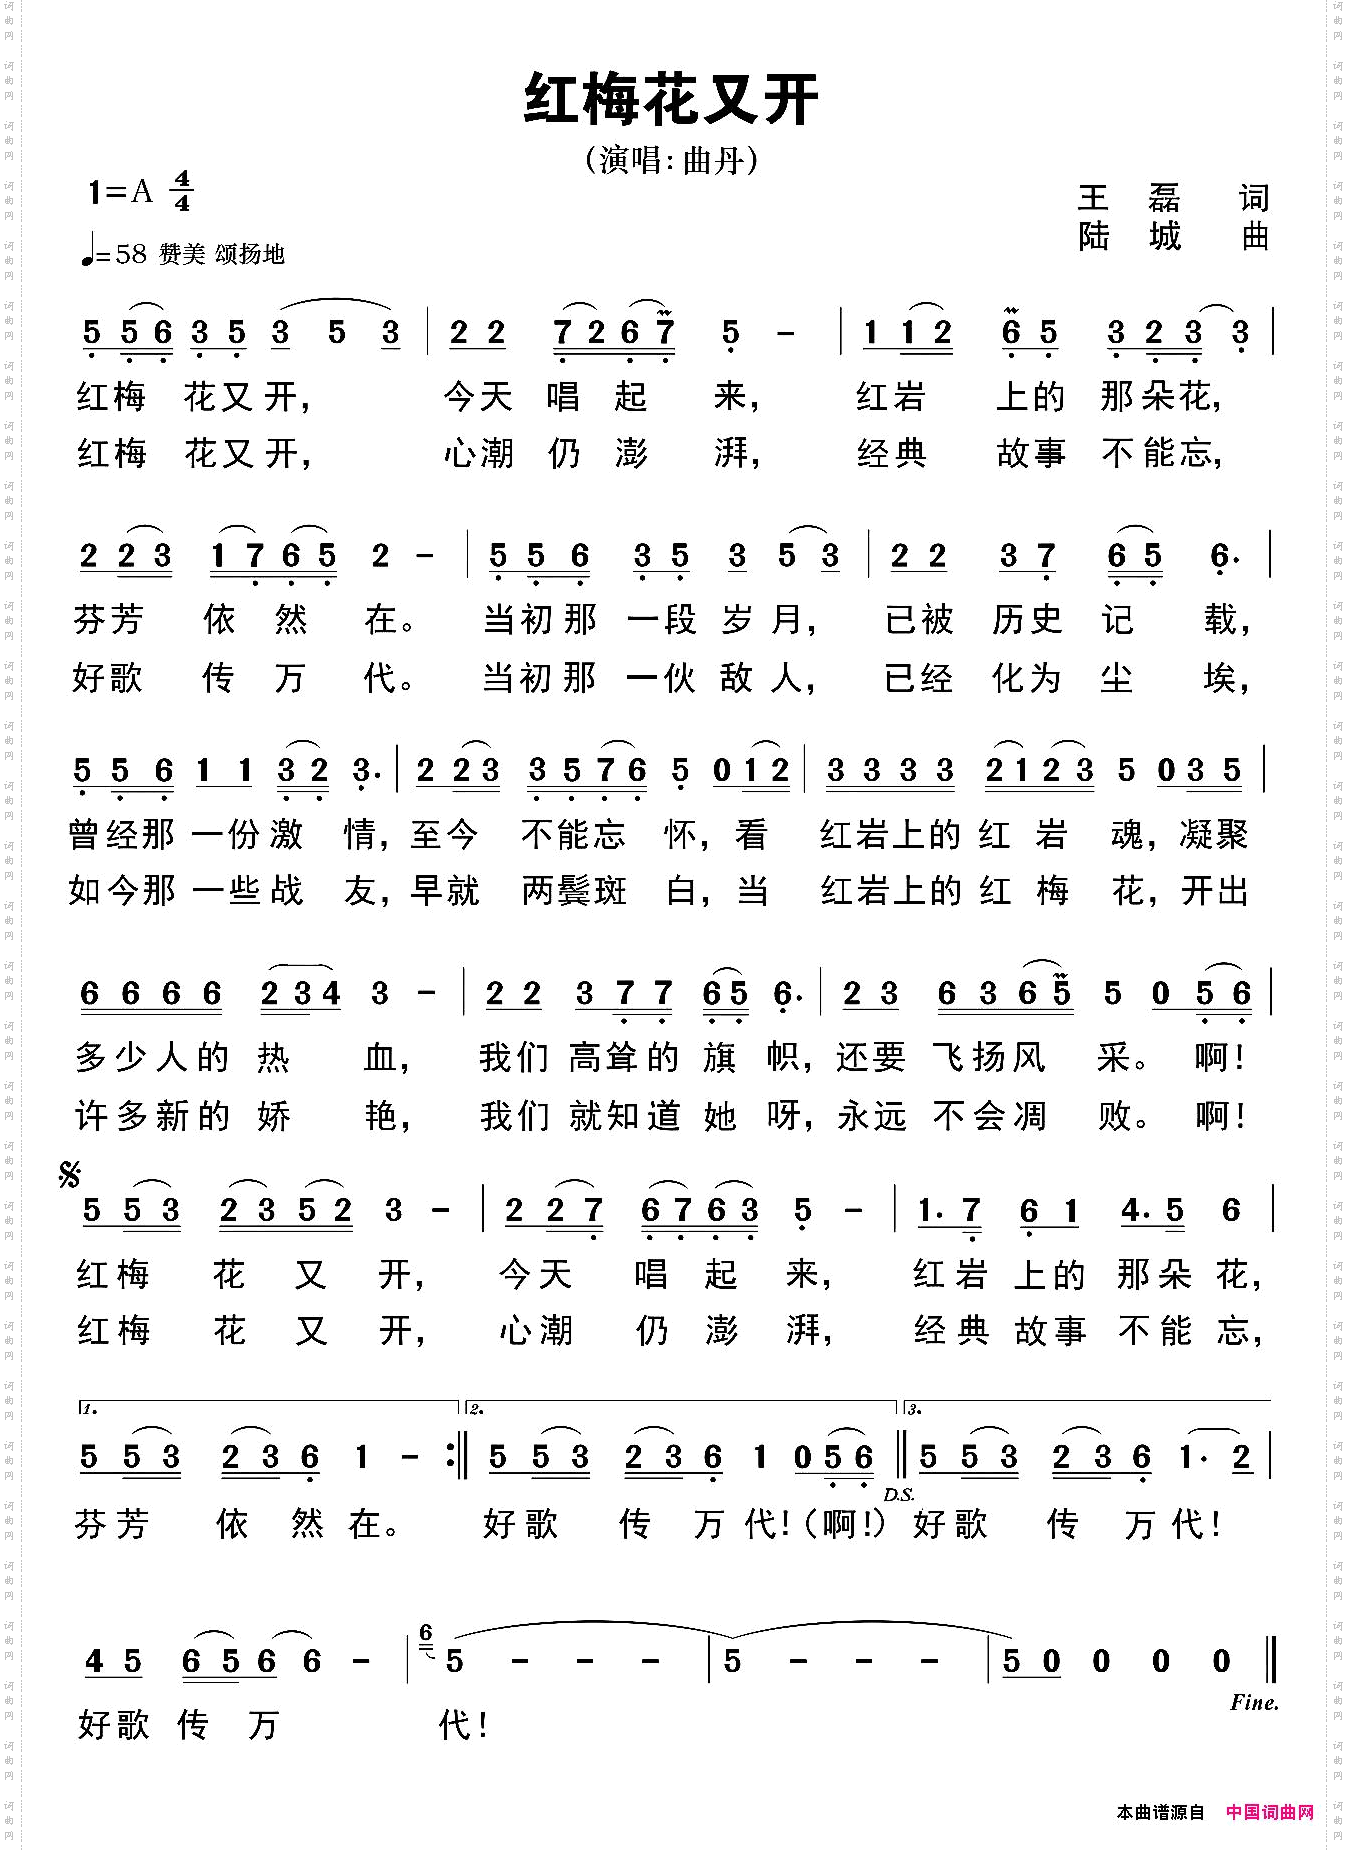 红梅花又开
(演唱:曲丹)
1=A 4/4
王 磊 词
陆 城 曲
♩=58 赞美 颂扬地
5 5 6 3 5 3 5 3 | 2 2 7 2 6 7 5 - | 1 1 2 6 5 3 2 3 3 |
红梅 花又开, 今天 唱 起 来, 红岩 上的 那朵花,
红梅 花又开, 心潮 仍 澎 湃, 经典 故事 不能忘,
2 2 3 1 7 6 5 2 - | 5 5 6 3 5 3 5 3 | 2 2 3 7 6 5 6. |
芬芳 依 然 在。 当初那 一段 岁 月, 已被 历史 记 载,
好歌 传 万 代。 当初那 一伙 敌 人, 已经 化为 尘 埃,
5 5 6 1 1 3 2 3. | 2 2 3 3 5 7 6 5 0 1 2 | 3 3 3 3 2 1 2 3 5 0 3 5 |
曾经那 一份激 情, 至今 不能忘 怀, 看 红岩上的 红 岩 魂, 凝聚
如今那 一些战 友, 早就 两鬓斑 白, 当 红岩上的 红 梅 花, 开出
6 6 6 6 2 3 4 3 - | 2 2 3 7 7 6 5 6. | 2 3 6 3 6 5 5 0 5 6 |
多少人的 热 血, 我们 高耸的 旗 帜, 还要 飞扬风 采。 啊!
许多新的 娇 艳, 我们 就知道 她 呀, 永远 不会凋 败。 啊!
5 5 3 2 3 5 2 3 - | 2 2 7 6 7 6 3 5 - | 1. 7 6 1 4. 5 6 |
红梅 花 又 开, 今天 唱 起 来, 红岩 上的 那朵 花,
红梅 花 又 开, 心潮 仍 澎 湃, 经典 故事 不能 忘,
1. 2. 3.
5 5 3 2 3 6 1 - :‖ 5 5 3 2 3 6 1 0 5 6 ‖ 5 5 3 2 3 6 1. 2 |
D.S.
芬芳 依 然 在。 好歌 传 万 代!(啊!) 好歌 传 万 代!
4 5 6 5 6 6 - | 6 5 - - - | 5 - - - | 5 0 0 0 0 ‖
Fine.
好歌 传 万 代!
本曲谱源自 中国词曲网